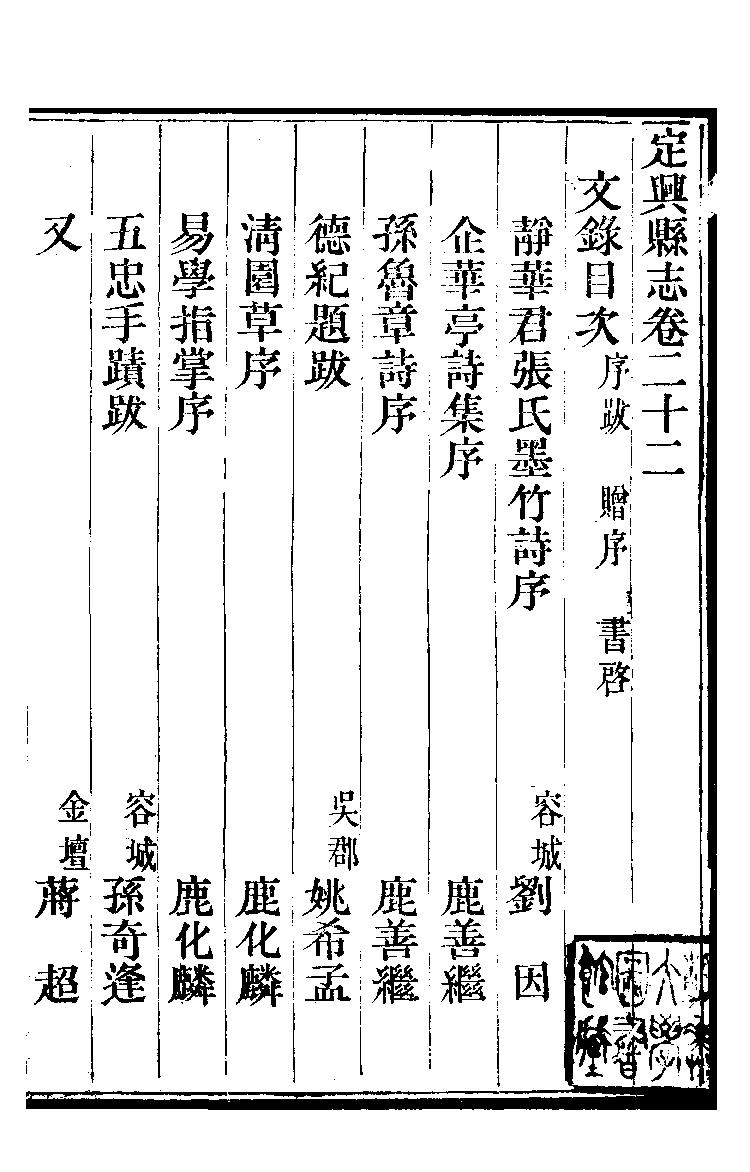 定興縣志卷二十二
文錄目次 序跋 贈序 書啓
靜華君張氏墨竹詩序 容城 劉因
企華亭詩集序 鹿善繼
孫魯章詩序 鹿善繼
德紀題跋 吳郡 姚希孟
淸園草序 鹿化麟
易學指掌序 鹿化麟
五忠手蹟跋 容城 孫奇逢
又 金壇 蔣超